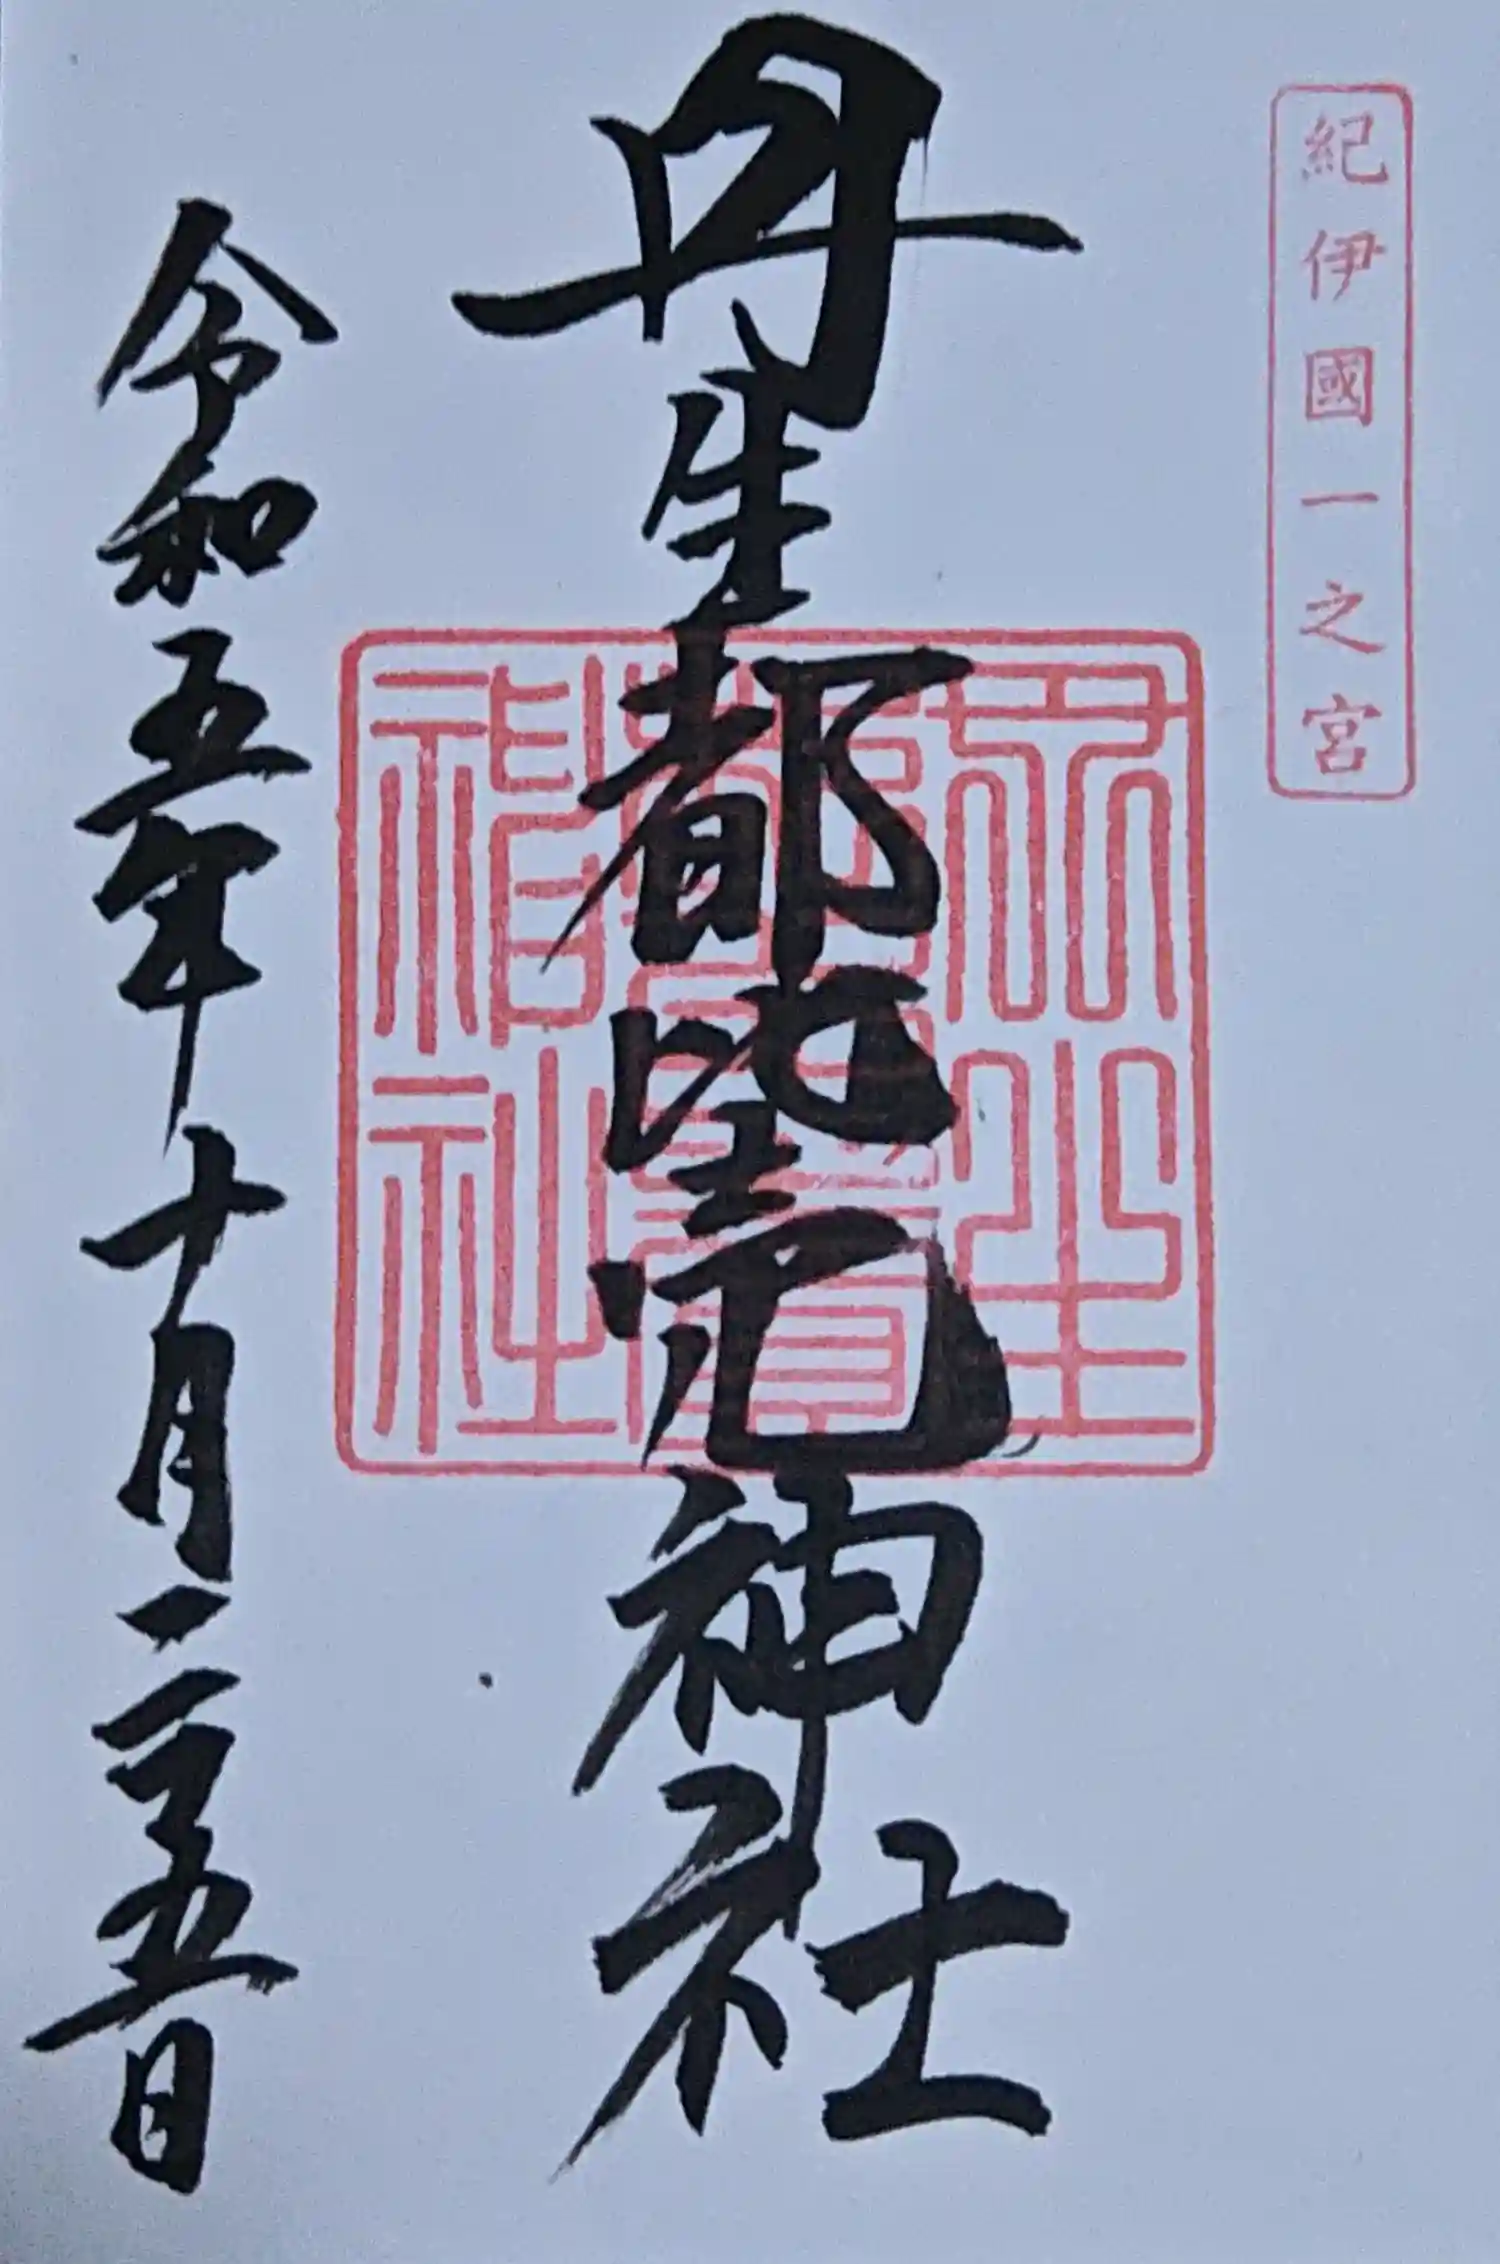 紀伊國一之宮
丹生都比売神社
丹生
都比賣
神社
令和五年十月二十五日